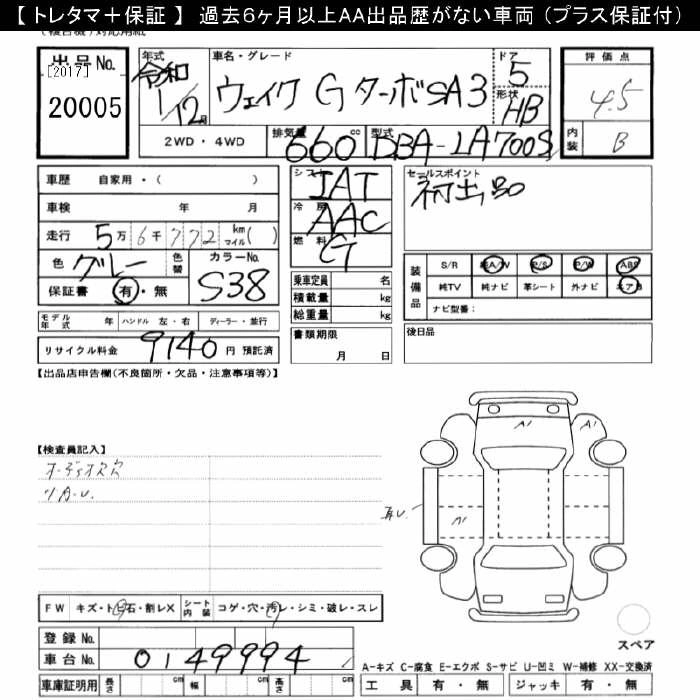 【 トレタマ＋保証 】 過去６ヶ月以上AA出品歴がない車両 (プラス保証付)
出品No.
[2017]
20005
年式
令和
1/12月
車名・グレード
ウェイク Gターボ SA3
ドア
5
形状
HB
評価点
4.5
内装
B
2WD・4WD
排気量 660 cc
型式 DBA-LA700S
車歴 自家用・( )
車検 年 月
走行 5万6千772 km マイル( )
色 グレー 色替
カラーNo. S38
保証書 有・無
シフト IAT
冷房 AAC
燃料 G
乗車定員 名
積載量 kg
総重量 kg
セールスポイント
初出品
装備品
S/R 純A/W P/S P/W ABS
純TV 純ナビ 革シート 外ナビ エアB
ナビ型番:
モデル年式 年 ハンドル 左・右 ディーラー・並行
リサイクル料金 9140 円 預託済
書類期限
月 日
後日品
【出品店申告欄(不良箇所・欠品・注意事項等)】
【検査員記入】
オーディオレス
A1
A1
A1
FW キズ・トビ石・割レX シート内装 コゲ・穴・汚レ・シミ・破レ・スレ
登録No.
車台No. 0149994
車庫証明用 長さ cm 幅 cm 高さ cm
スペア
A-キズ C-腐食 E-エクボ S-サビ U-凹ミ W-補修 XX-交換済
工具 有・無 ジャッキ 有・無